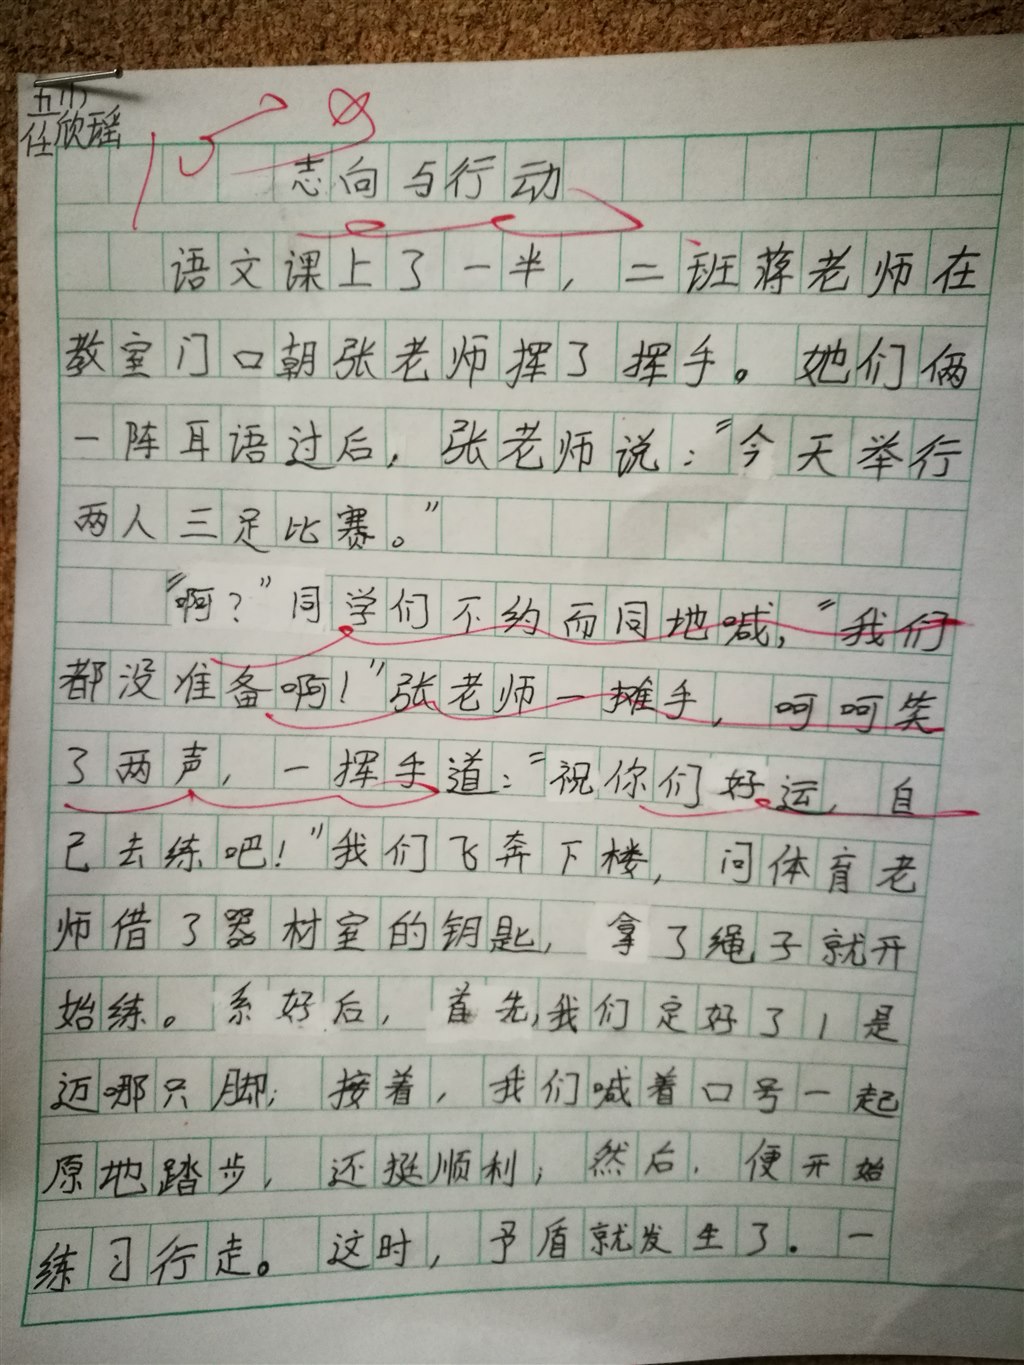 五(1)
任欣瑶
志向与行动
语文课上了一半，二班蒋老师在
教室门口朝张老师挥了挥手。她们俩
一阵耳语过后，张老师说：“今天举行
两人三足比赛。”
“啊？”同学们不约而同地喊，“我们
都没准备啊！”张老师一摊手，呵呵笑
了两声，一挥手道：“祝你们好运，自
己去练吧！”我们飞奔下楼，问体育老
师借了器材室的钥匙，拿了绳子就开
始练。系好后，首先，我们定好了1是
迈哪只脚；接着，我们喊着口号一起
原地踏步，还挺顺利；然后，便开始
练习行走。这时，予盾就发生了.一